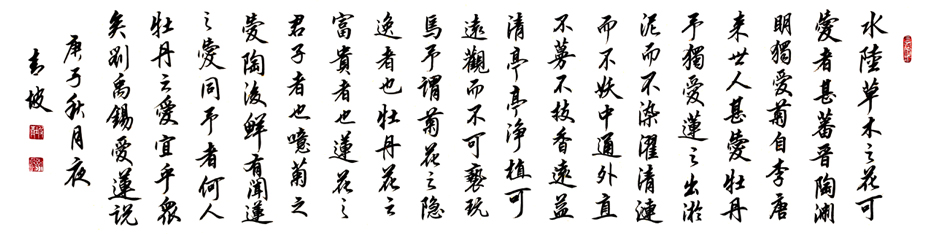 水陸草木之花可
愛者甚蕃晉陶淵
明獨愛菊自李唐
来世人甚愛牡丹
予獨愛蓮之出淤
泥而不染濯清漣
而不妖中通外直
不蔓不枝香遠益
清亭亭净植可
遠觀而不可褻玩
焉予謂菊花之隐
逸者也牡丹花之
富貴者也蓮花之
君子者也噫菊之
愛陶後鮮有聞蓮
之愛同予者何人
牡丹之愛宜乎衆
矣劉禹錫愛蓮説
庚子秋月夜
坡